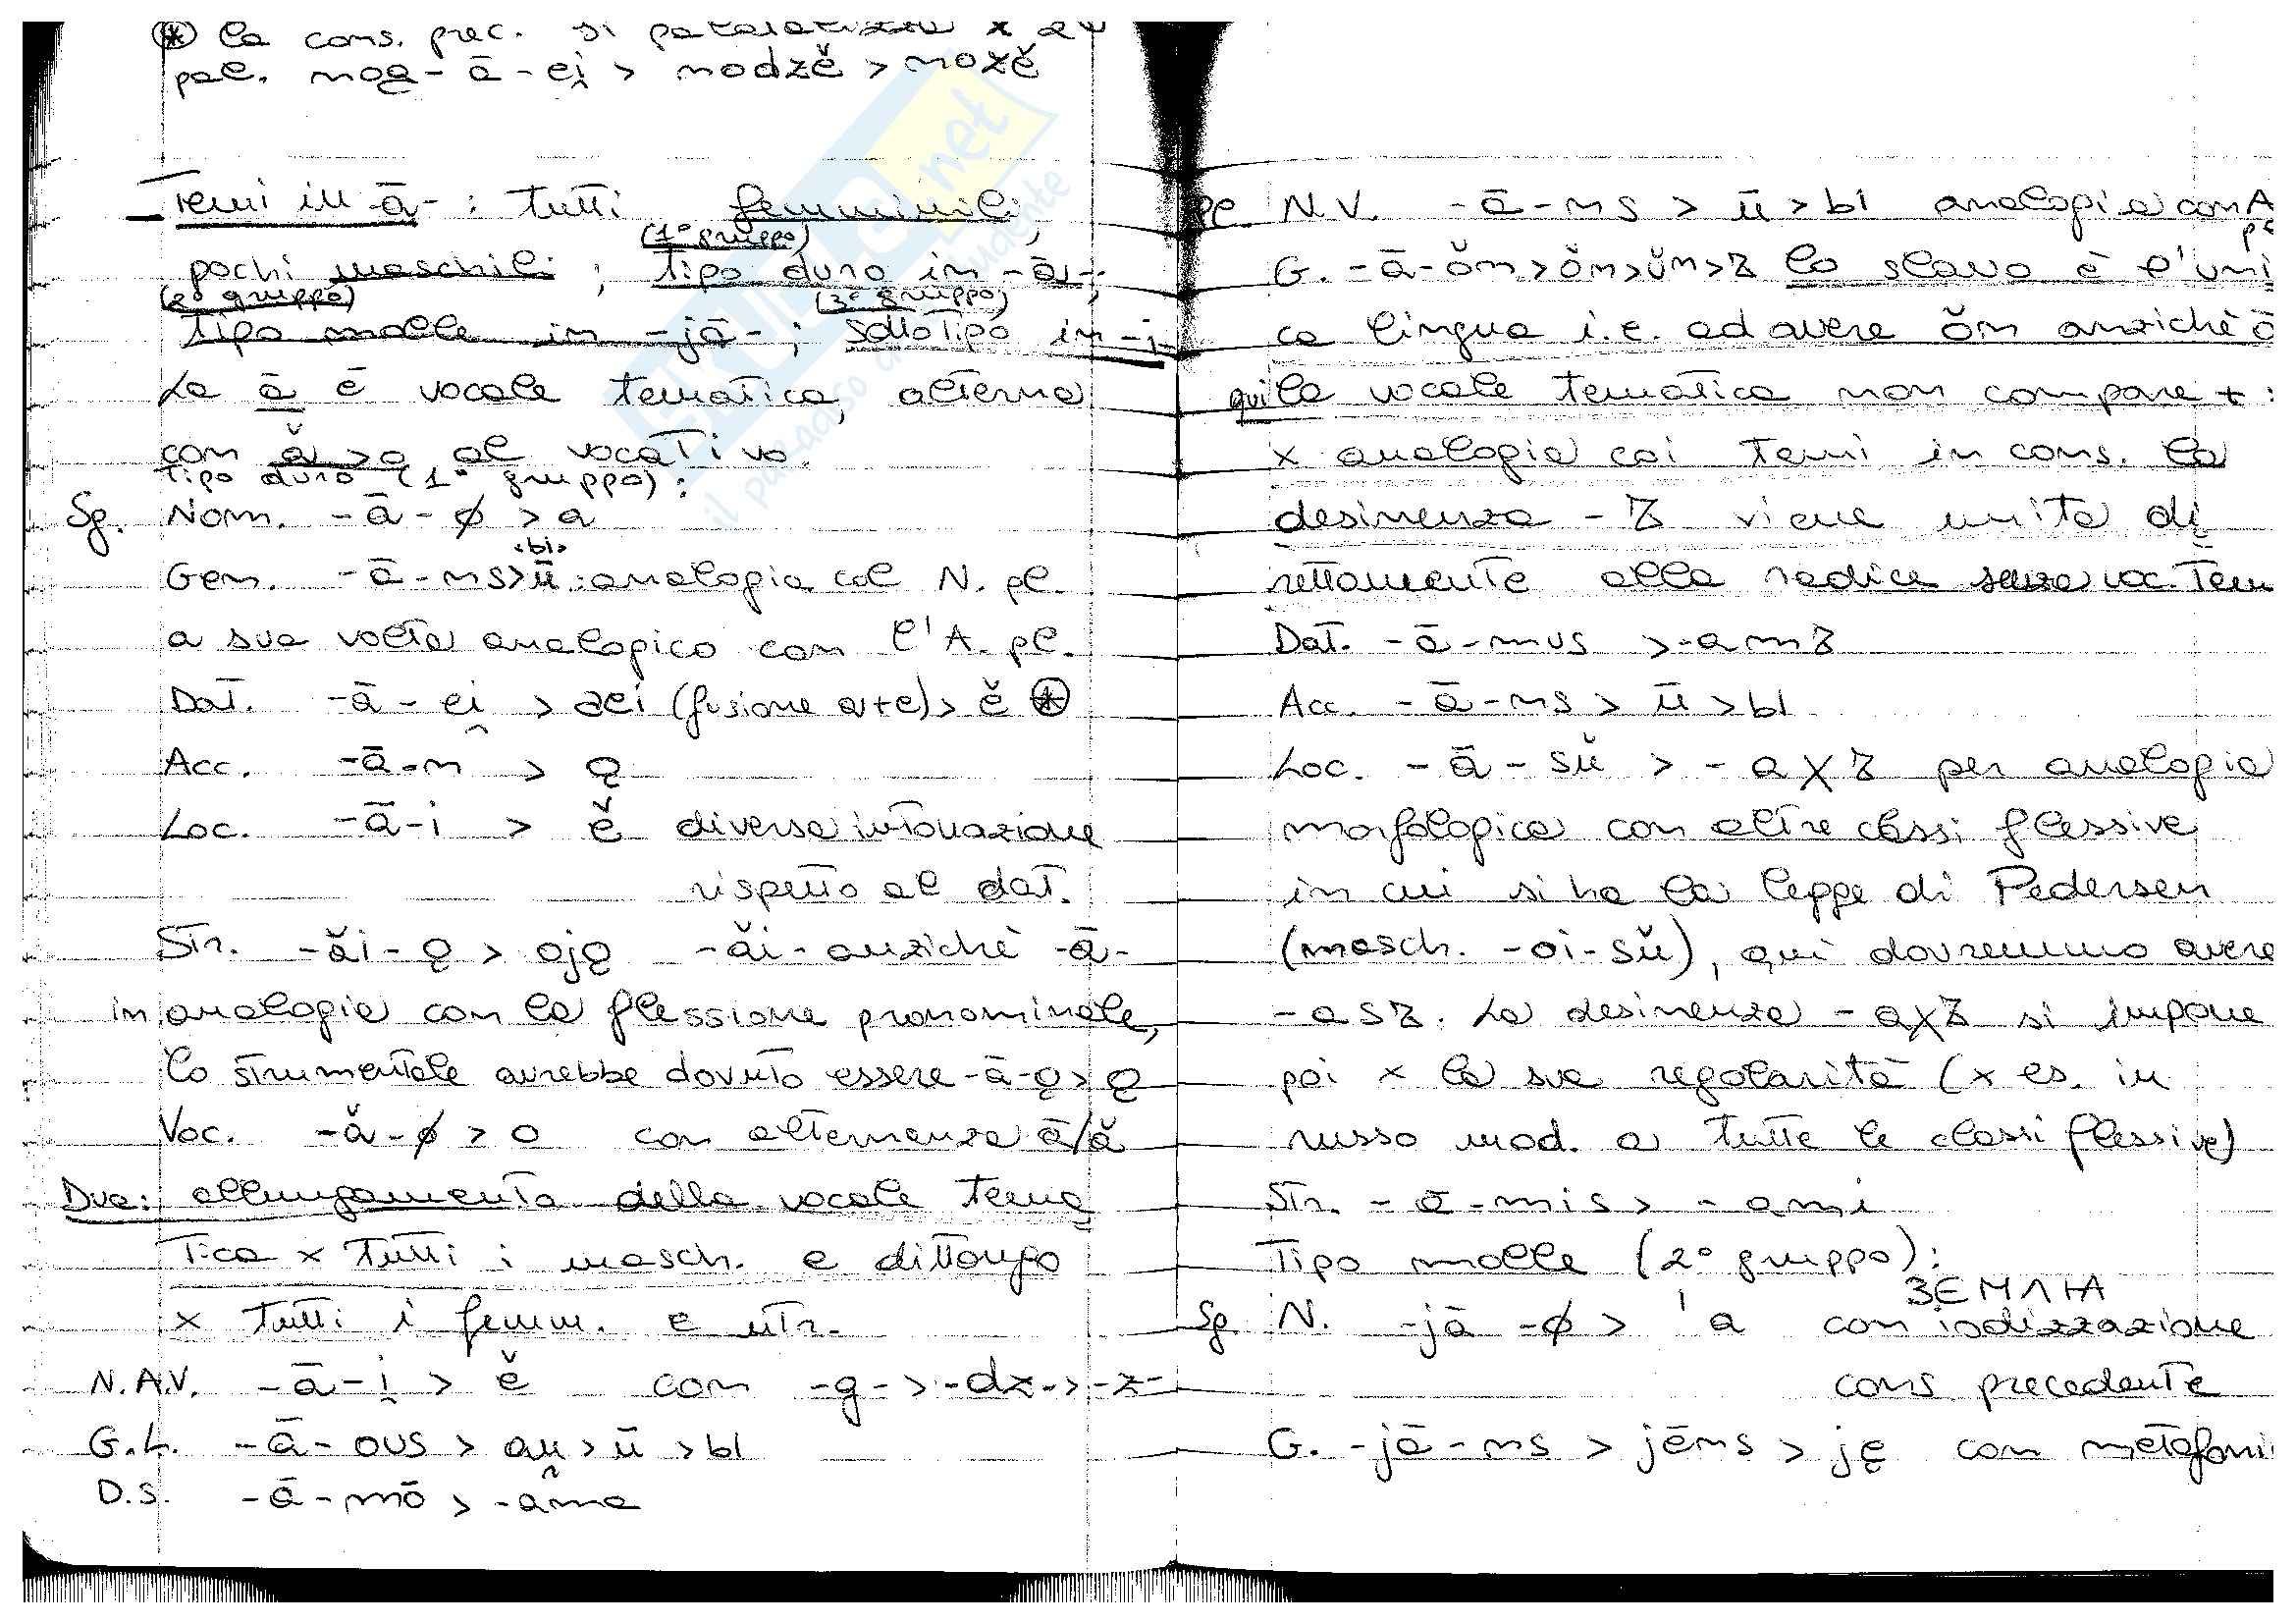 ⊛ la cons. prec. si palatalizza x 2ª
pal. nog-ā-ei̯ > nodzě > nozě
Temi in -ā- : tutti femminili,
(1° gruppo)
pochi maschili ; tipo duro in -ā-;
(2° gruppo) (3° gruppo)
tipo molle in -jā- ; sottotipo in -i-
La ā è vocale tematica, alterna
con ă > o al vocativo.
Tipo duro (1° gruppo):
Sg. Nom. -ā-ø > a
<ы>
Gen. -ā-ns>ū : analogia col N. pl.
a sua volta analogico con l'A. pl.
Dat. -ā-ei̯ > aei (fusione a+e)> ě ⊛
Acc. -ā-m > ǫ
Loc. -ā-i > ě diversa intonazione
rispetto al dat.
Str. -ăi-ǫ > ojǫ -ăi- anziché -ā-
in analogia con la flessione pronominale,
lo strumentale avrebbe dovuto essere -ā-ǫ>ǫ
Voc. -ă-ø > o con alternanza ā/ă
Due: allungamento della vocale tema
tica x tutti i masch. e dittongo
x tutti i femm. e ntr.
N.A.V. -ā-i̯ > ě con -g->-dz->-z-
G.L. -ā-ous > au̯ > ū > ы
D.S. -ā-mō > -ama
pl. N.V. -ā-ns > ū > ы analogia con A
pl
G. -ā-ŏn>ŏn>ŭn>ъ lo slavo è l'uni
ca lingua i.e. ad avere ŏn anziché ō
qui la vocale tematica non compare + :
x analogia coi temi in cons. la
desinenza -ъ viene unita di
rettamente alla radice senza voc. Tem
Dat. -ā-mus > -amъ
Acc. -ā-ns > ū > ы
Loc. -ā-sŭ > -aχъ per analogia
morfologica con altre classi flessive
in cui si ha la legge di Pedersen
(masch. -oi-sŭ), qui dovremmo avere
-asъ. La desinenza -aχъ si impone
poi x la sua regolarità (x es. in
russo mod. a tutte le classi flessive)
Str. -ā-mis > -ami
Tipo molle (2° gruppo):
ЗЕМЛꙖ
Sg. N. -jā-ø > 'a con iodizzazione
cons precedente
G. -jā-ns > jēns > ję con metafoni